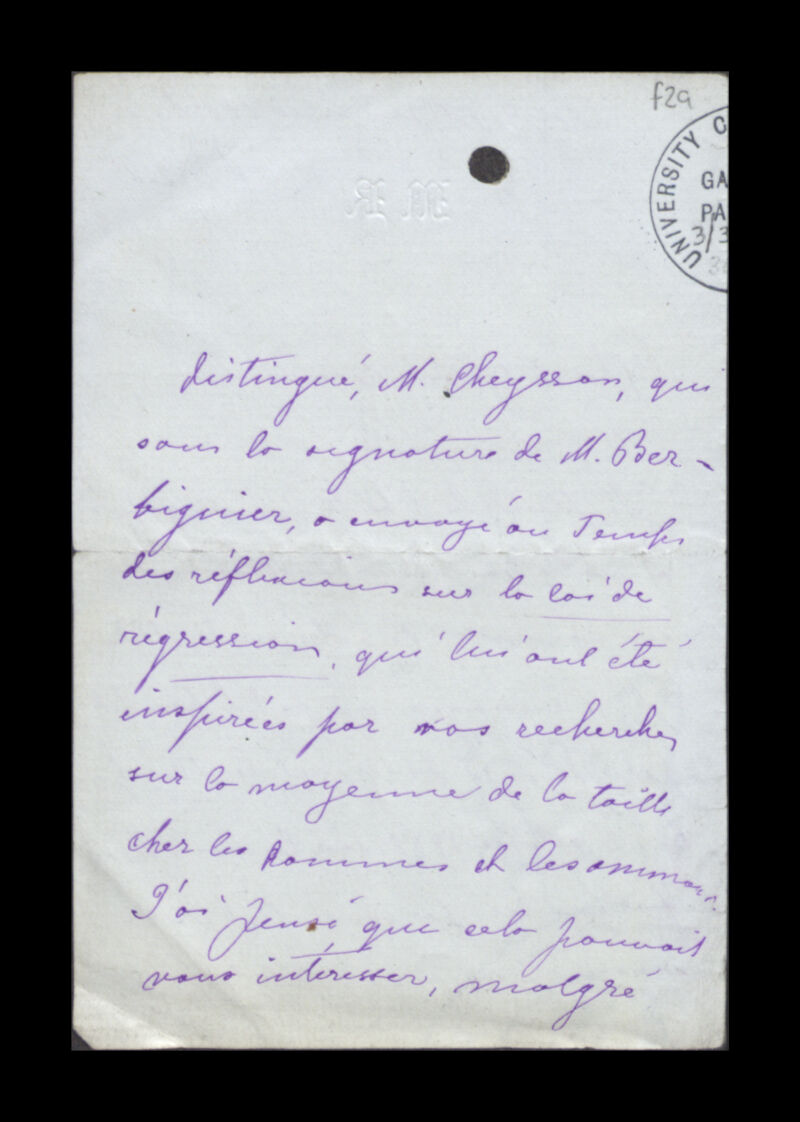 f2a
UNIVERSITY C
GA
PA
3/3
distingué, M. Cheysson, qui
sous la signature de M. Ber-
bignier, a envoyé au Temps
des réflexions sur la loi de
régression, qui lui ont été
inspirées par vos recherches
sur la moyenne de la taille
chez les hommes et les
J'ai pensé que cela pouvait
vous intéresser, malgré